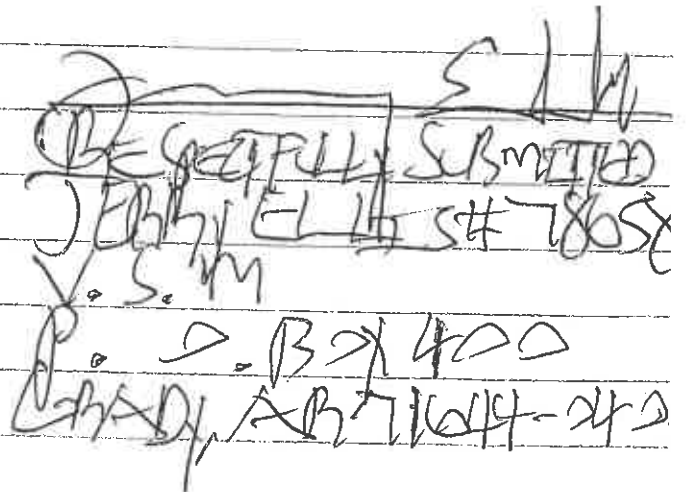 RESPECTFULLY SUBMITTED
JERRY ELLIS #78658
V. S. M
P. O. BOX 400
GRADY, AR 71644-040